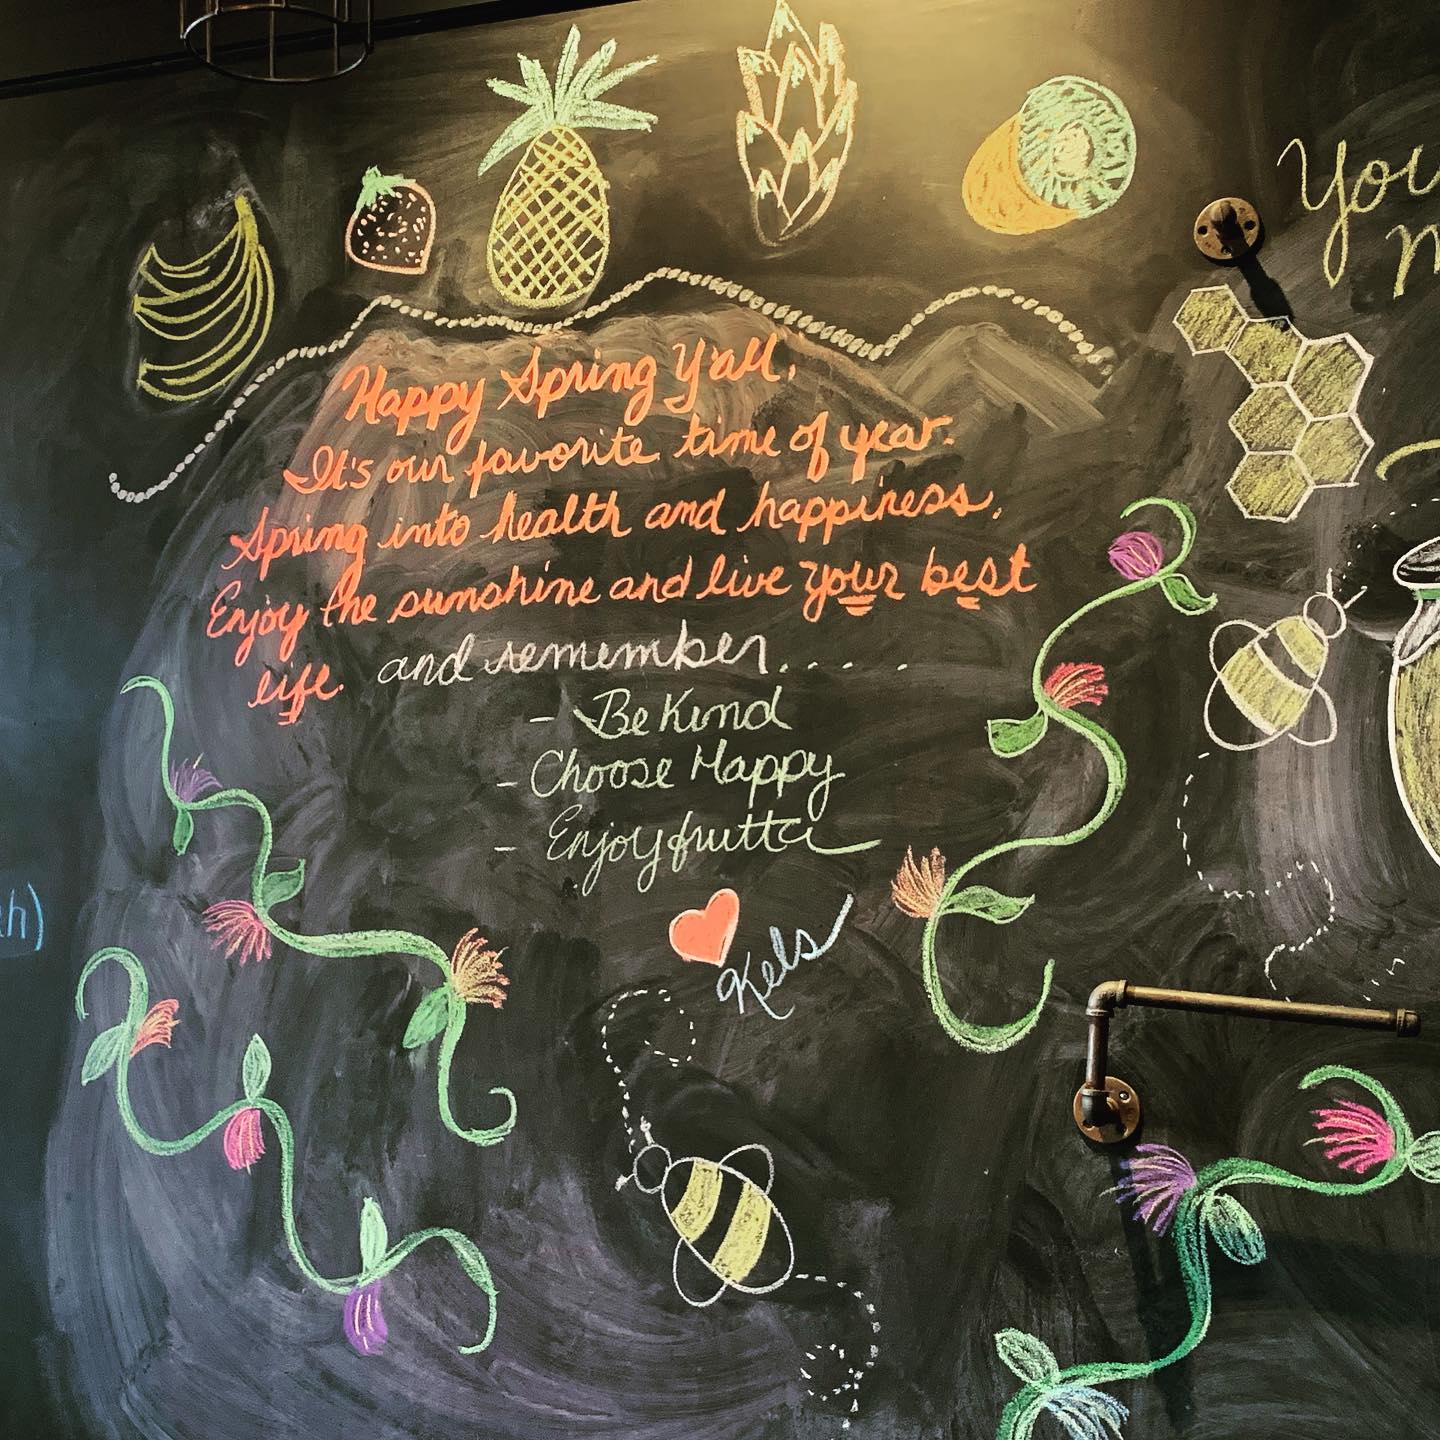 Happy Spring Y'all,
It's our favorite time of year.
Spring into health and happiness,
Enjoy the sunshine and live your best
life. and remember.....
- Be Kind
- Choose Happy
- Enjoy frutta
Kels